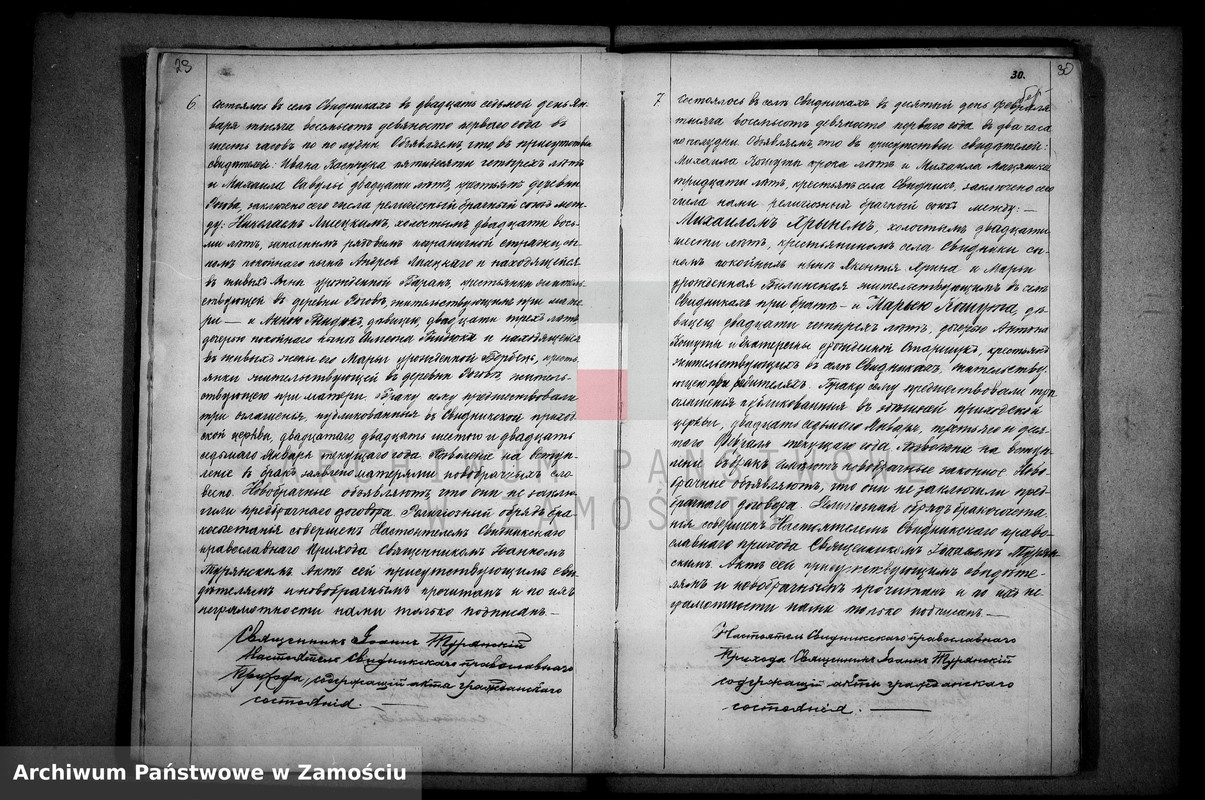 23
6
состоялось въ селѣ Свидникахъ въ двадцать седьмой день Ян-
варя тысяча восемьсотъ девяносто перваго года въ
шесть часовъ по полудни. Объявляемъ, что въ присутствіи
свидѣтелей: Ивана пятидесяти четырехъ лѣтъ
и Михаила Савулы двадцати лѣтъ, крестьянъ деревни
Рогова, заключенъ сего числа религіозный брачный союзъ меж-
ду: Николаемъ Лисецкимъ, холостымъ двадцати вось-
ми лѣтъ, запаснымъ рядовымъ пограничной стражи, сы-
номъ покойнаго нынѣ Андрея и находящейся
въ живыхъ Анны урожденной Баранъ, крестьянки житель-
ствующей въ деревни Роговъ, жительствующимъ при мате-
ри — и Анною дѣвицею, двадцати трехъ лѣтъ
дочерью покойнаго нынѣ Симеона и находящейся
въ живыхъ жены его Маріи урожденной кресть-
янки жительствующей въ деревни Роговъ, житель-
ствующею при матери. Браку сему предшествовали
три оглашенія, публикованныя въ Свидницкой приход-
ской церкви, двадцатаго двадцать шестого и двадцать
седьмаго Января текущаго года. Позволеніе на вступ-
леніе въ бракъ заявлено матерями новобрачныхъ сло-
весно. Новобрачные объявляютъ что они не заклю-
чили предбрачнаго договора. Религіозный обрядъ бра-
косочетанія совершенъ Настоятелемъ Свидникскаго
православнаго Прихода Священникомъ Іоанномъ
Турянскимъ. Актъ сей присутствующимъ сви-
дѣтелямъ и новобрачнымъ прочитанъ и по ихъ
неграмотности нами только подписанъ. —
Священникъ Іоаннъ Турянскій
Настоятель Свидникскаго православнаго
Прихода, содержащій акты гражданскаго
состоянія. —
30.
30
7
состоялось въ селѣ Свидникахъ въ десятый день февраля
тысяча восемьсотъ девяносто перваго года въ два часа
по полудни. Объявляемъ, что въ присутствіи свидѣтелей:
Михаила Кошуты сорока лѣтъ и Михаила
тридцати лѣтъ, крестьянъ села Свидникъ, заключено сего
числа нами религіозный брачный союзъ между: —
Михаиломъ Хрыномъ, холостымъ двадцати
шести лѣтъ, крестьяниномъ села Свидники сы-
номъ покойныхъ нынѣ Хрына и Маріи
урожденная Билинская жительствующимъ въ селѣ
Свидникахъ при братѣ — и Марьею Кошута, дѣ-
вицею двадцати четырехъ лѣтъ, дочерью Антона
Кошуты и Екатерины урожденной крестьянъ
жительствующихъ въ селѣ Свидникахъ, жительству-
ющею при родителяхъ. Браку сему предшествовали три
оглашенія публикованныя въ здѣшней приходской
церкви, двадцать седьмаго Января, третьяго и деся-
таго Февраля текущаго года, позволеніе на вступ-
леніе въ бракъ имѣютъ новобрачные законное. Ново-
брачные объявляютъ, что они не заключили пред-
брачнаго договора. Религіозный обрядъ бракосочета-
нія совершенъ Настоятелемъ Свидникскаго право-
славнаго прихода Священникомъ Іоанномъ Турян-
скимъ. Актъ сей присутствующимъ свидѣте-
лямъ и новобрачнымъ прочитанъ и по ихъ не-
грамотности нами только подписанъ. —
Настоятель Свидникскаго православнаго
Прихода Священникъ Іоаннъ Турянскій
содержащій акты гражданскаго
состоянія. —
ARCHIWUM PAŃSTWOWE
W ZAMOŚCIU
Archiwum Państwowe w Zamościu